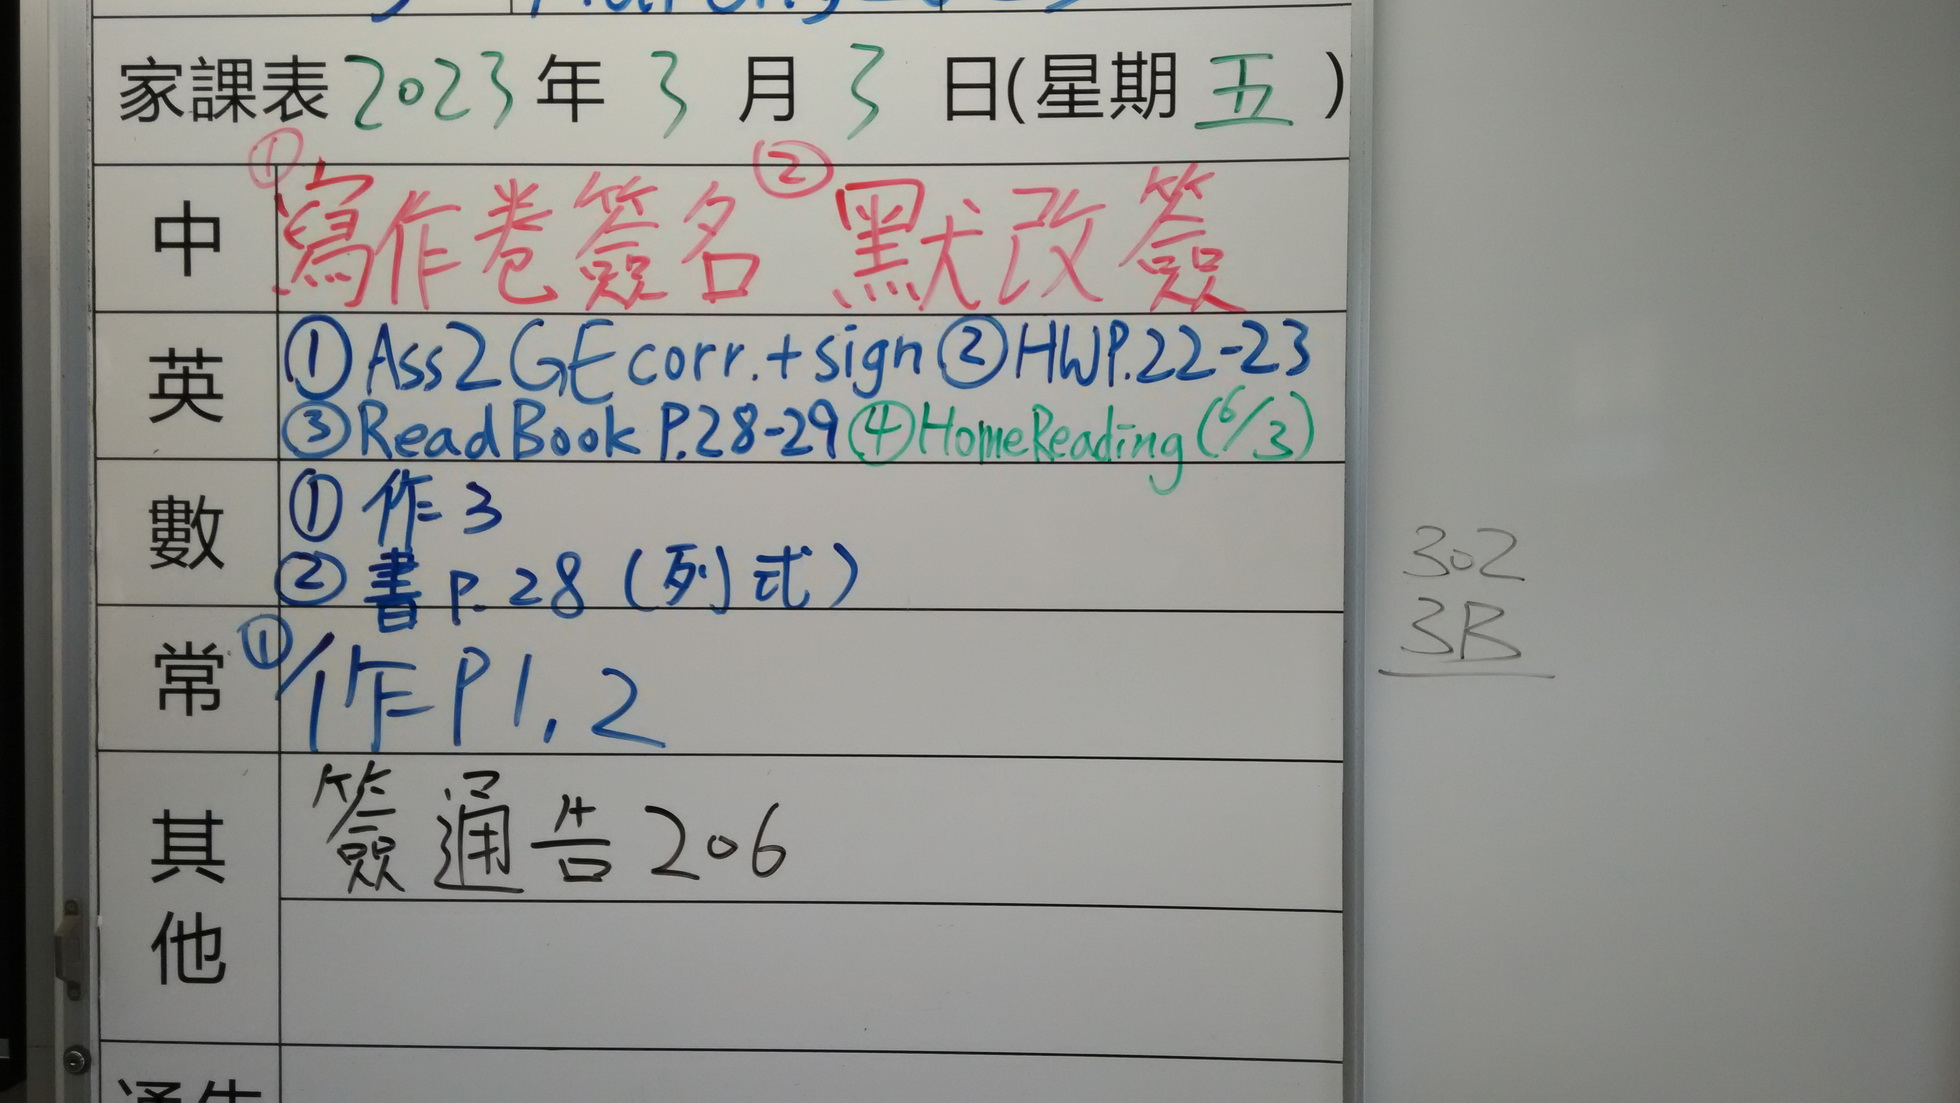 家課表 2023 年 3 月 3 日(星期 五 )
中 ① 寫作卷簽名 ② 默改簽
英 ① Ass2 GE corr. + sign ② HW P.22-23
③ Read Book P.28-29 ④ Home Reading (6/3)
數 ① 作 3
② 書 p. 28 (列式)
常 ① 作 P1, 2
其他 簽通告 206
302
3B